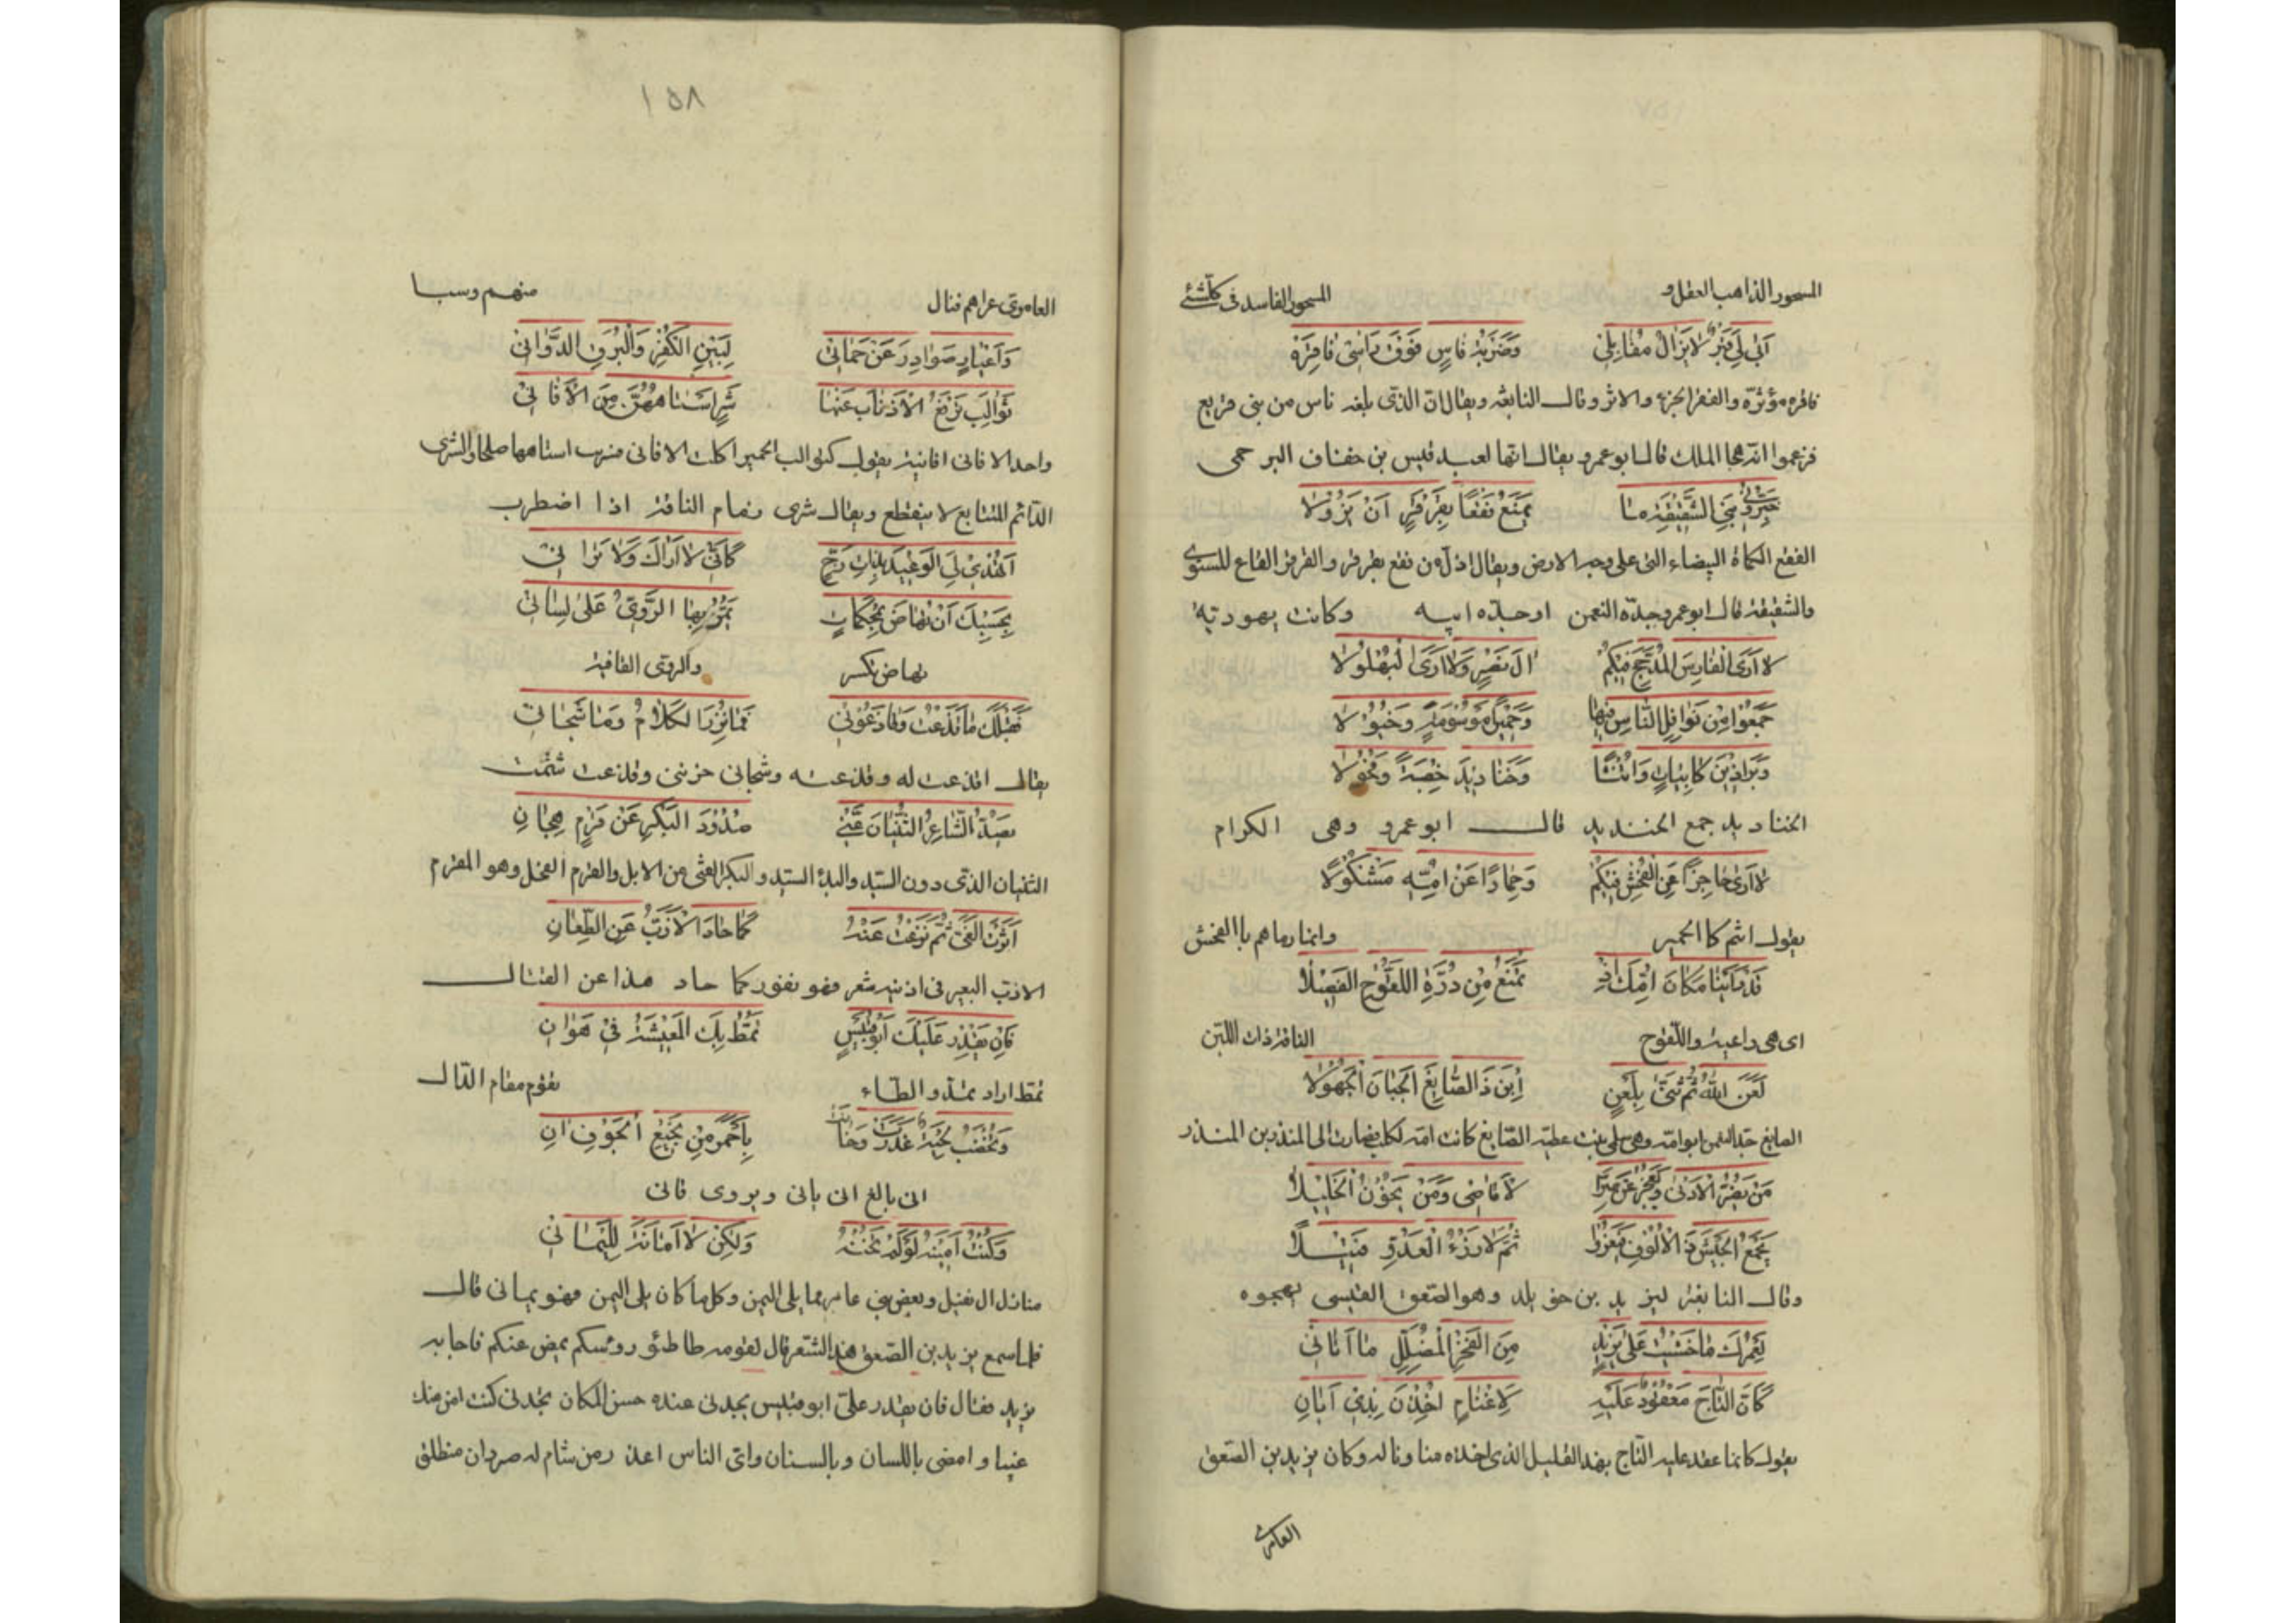 المسحور الذاهب العقل و المسحور الفاسد فى كل شئ
ابى لى قبر لا يزال مقابلى وضربة فاس فوق راسى فاقرة
فاقره مؤثرة والفقر الجز والاثر وقال النابغة ويقال ان الذى بلغه ناس من بنى قريع
فزعموا انه هجا الملك قال ابو عمرو يقال انها لعبد قيس بن خفاف البرجمى
خبرونى بنى الشقيقة ما يمنع فقعا بقرقر ان يزولا
الفقع الكماة البيضاء التى على وجه الارض ويقال اذل من فقع بقرقر والقرقر القاع المستوى
والشقيقة قال ابو عمرو جدة النعمن او جدة ابيه وكانت يهودية
لا ارى الفارس المدجج منكم ال نصر ولا ارى البهلولا
جمعوا من نوافل الناس فيها وحميرا موسومة وخيولا
وبراذين كابيات واتنا وخناذيذ خصية وفحولا
الخناذيذ جمع الخنذيذ قال ابو عمرو وهى الكرام
لا ارى حاجزا عن الفحش فيكم وحمارا عن امه مشكولا
يقول انتم كالحمير وانما رماهم بالفحش
قد راينا مكان امك اذ تمنع من درة اللقوح الفصيلا
اى هى راعية واللقوح الناقة ذات اللبن
لعن الله ثم ثنى بلعن ابن ذا الصايغ الجبان الجهولا
الصايغ جد النعمن ابو امه وهى سلمى بنت عطية الصايغ كانت امة لكلب فصارت الى المنذر بن المنذر
من يضر الادنى ويعجز عن ضر الاقاصى ومن يخون الخليلا
يجمع الجيش ذا الالوف ويغزوا ثم لا يرزء العدو فتيلا
وقال النابغة ليزيد بن خويلد وهو الصعق القيسى يهجوه
لعمرك ما خشيت على يزيد من الفخر المضلل ما اتانى
كان التاج معقود عليه لاغنام اخذن بذى ابان
يقول كانما عقد عليه التاج بهذا القليل الذى اخذه منا وناله وكان يزيد بن الصعق
العامرى
١٥٨
العاموى غزاهم فنال منهم وسبا
واعيار صوادر عن حماتى لبين الكفر والبرق الدوانى
ثوالب ترفع الاذناب عنها شرى استاههن من الافانى
واحد الافانى افانية يقول كثوالب الحمير اكلت الافانى فشرب استاهها صلحا والشرى
الدائم المتتابع لا ينقطع ويقال شرى زمام الناقة اذا اضطرب
اتهدى لى الوعيد ببات رح كانى لا اراك ولا ترانى
بحسبك ان تهاض بمحكمات يمر بها الروى على لسانى
تهاض تكسر والروى القافية
فقبلك ما قذعت وقاذعونى فما نزر الكلام وما شجانى
يقال اقذعت له وقذعته وشجانى حزننى وقذعت شتمت
يصد الشاعر الثنيان عنى صدود البكر عن قرم هجان
الثنيان الذى دون السيد والبدء السيد والبكر الفتى من الابل والقرم الفحل وهو المقرم
اثرت الغى ثم نزعت عنه كما حاد الازب عن الطعان
الازب البعير فى اذنيه شعر فهو نفور كما حاد هذا عن القتال
فان يقدر عليك ابو قبيس تمط بك المعيشة فى هوان
تمط اراد تمد والطاء تقوم مقام الدال
وتخضب لحية غدرت وخانت باحمر من نجيع الجوف ان
انى بالغ انى يانى ويروى قانى
وكنت امينه لو لم تخنه ولكن لا امانة لليمانى
منازل ال نفيل وبعض بنى عامر مما يلى اليمن وكل ما كان يلى اليمن فهو يمانى قال
فلما سمع يزيد بن الصعق هذا الشعر قال لقومه طاطئو روسكم يمض عنكم فاجابه
يزيد فقال فان يقدر على ابو قبيس يجدنى عنده حسن المكان تجدنى كنت امن منك
غيبا و امضى باللسان وبالسنان واى الناس اغدر من شام له صردان منطلق